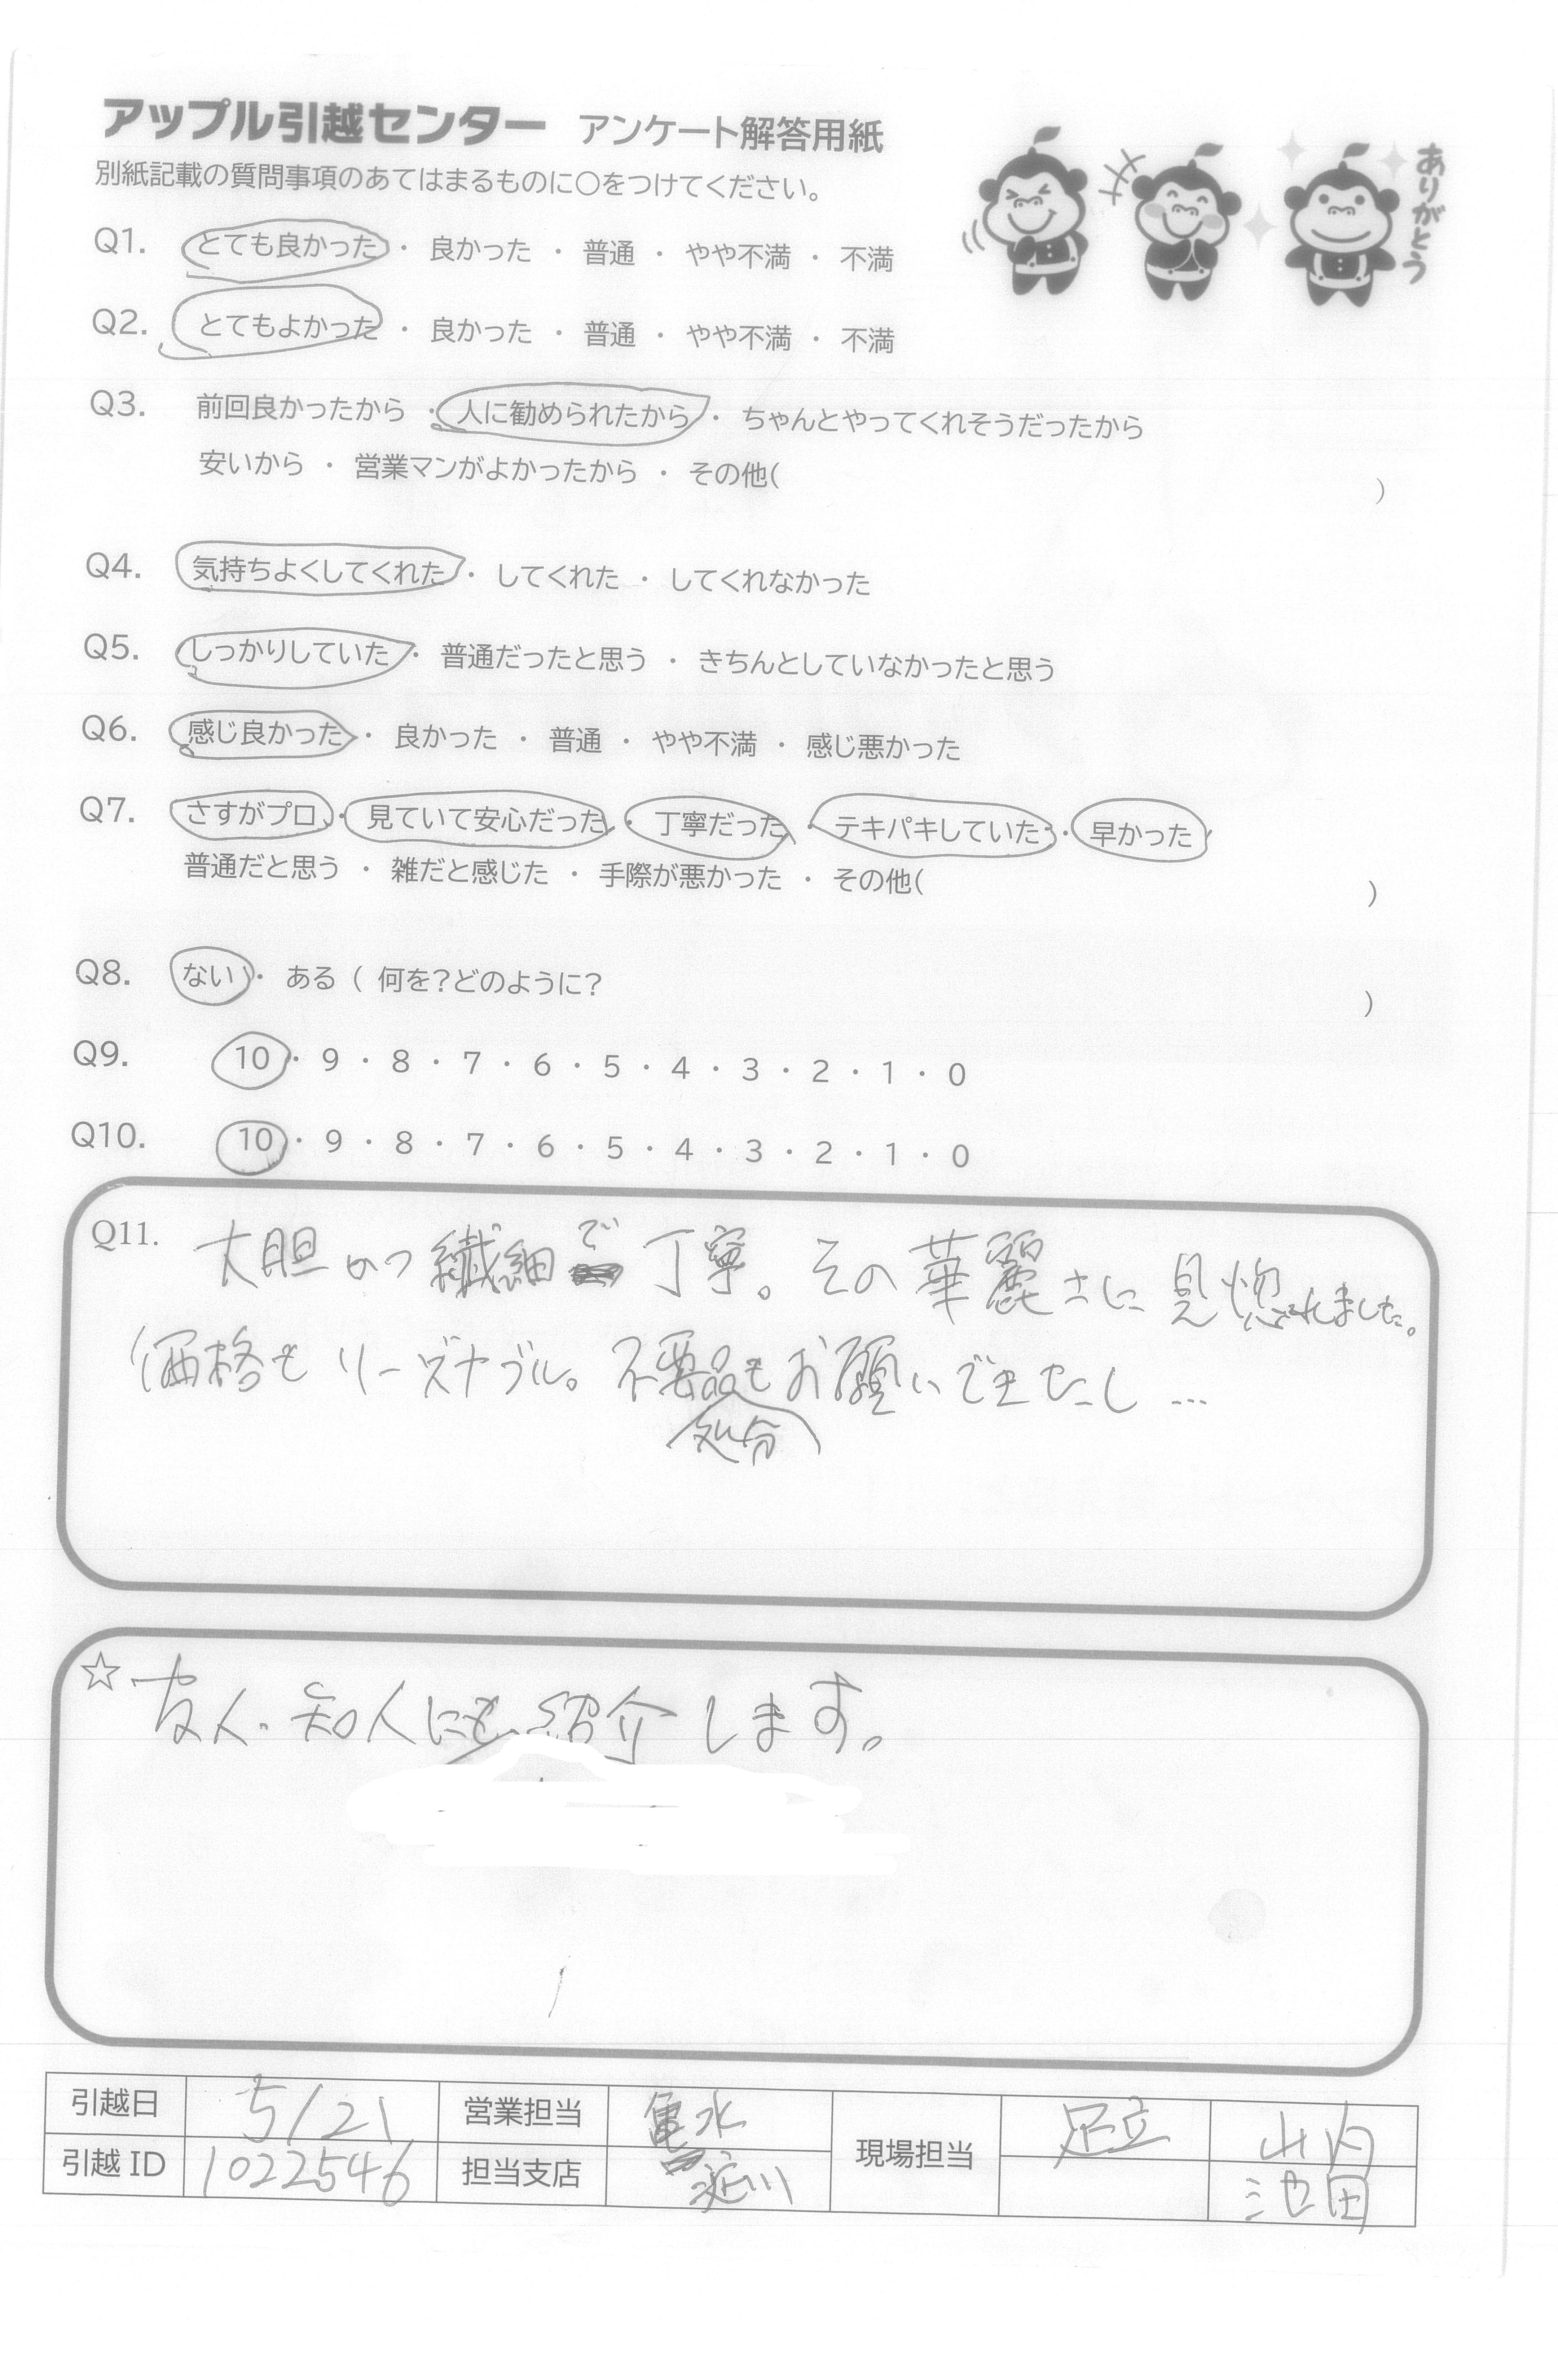 アップル引越センター アンケート解答用紙
別紙記載の質問事項のあてはまるものに○をつけてください。
ありがとう
Q1. とても良かった ・ 良かった ・ 普通 ・ やや不満 ・ 不満
Q2. とてもよかった ・ 良かった ・ 普通 ・ やや不満 ・ 不満
Q3. 前回良かったから ・ 人に勧められたから ・ ちゃんとやってくれそうだったから
安いから ・ 営業マンがよかったから ・ その他( )
Q4. 気持ちよくしてくれた ・ してくれた ・ してくれなかった
Q5. しっかりしていた ・ 普通だったと思う ・ きちんとしていなかったと思う
Q6. 感じ良かった ・ 良かった ・ 普通 ・ やや不満 ・ 感じ悪かった
Q7. さすがプロ ・ 見ていて安心だった ・ 丁寧だった ・ テキパキしていた ・ 早かった
普通だと思う ・ 雑だと感じた ・ 手際が悪かった ・ その他( )
Q8. ない ・ ある ( 何を?どのように? )
Q9. 10 ・ 9 ・ 8 ・ 7 ・ 6 ・ 5 ・ 4 ・ 3 ・ 2 ・ 1 ・ 0
Q10. 10 ・ 9 ・ 8 ・ 7 ・ 6 ・ 5 ・ 4 ・ 3 ・ 2 ・ 1 ・ 0
Q11. 大胆かつ繊細で丁寧。その華麗さに見惚れました。
価格もリーズナブル。不要品もお願いできたし…
処分
☆ 友人・知人にも紹介します。
引越日 5/21 営業担当 亀水 現場担当 足立 山内
引越 ID 1022546 担当支店 淀川 池田